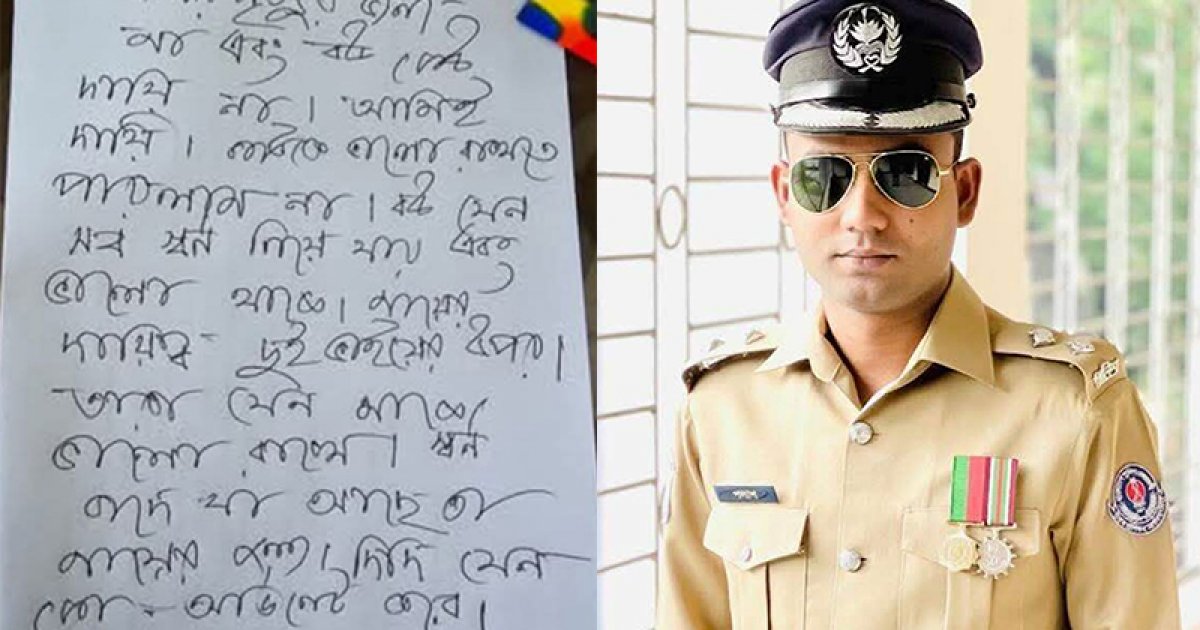 আমার মৃত্যুর জন্য
মা এবং বউ কেউ
দায়ি না। আমিই
দায়ি। কাউকে ভালো রাখতে
পারলাম না। বউ যেন
সব স্বর্ণ নিয়ে যায় এবং
ভালো থাকে। মায়ের
দায়িত্ব দুই ভাইয়ের উপর।
তারা যেন মাকে
ভালো রাখে। স্বর্ণ
বাদে যা আছে তা
মায়ের জন্য। দিদি যেন
কো-অর্ডিনেট করে।
পলাশ